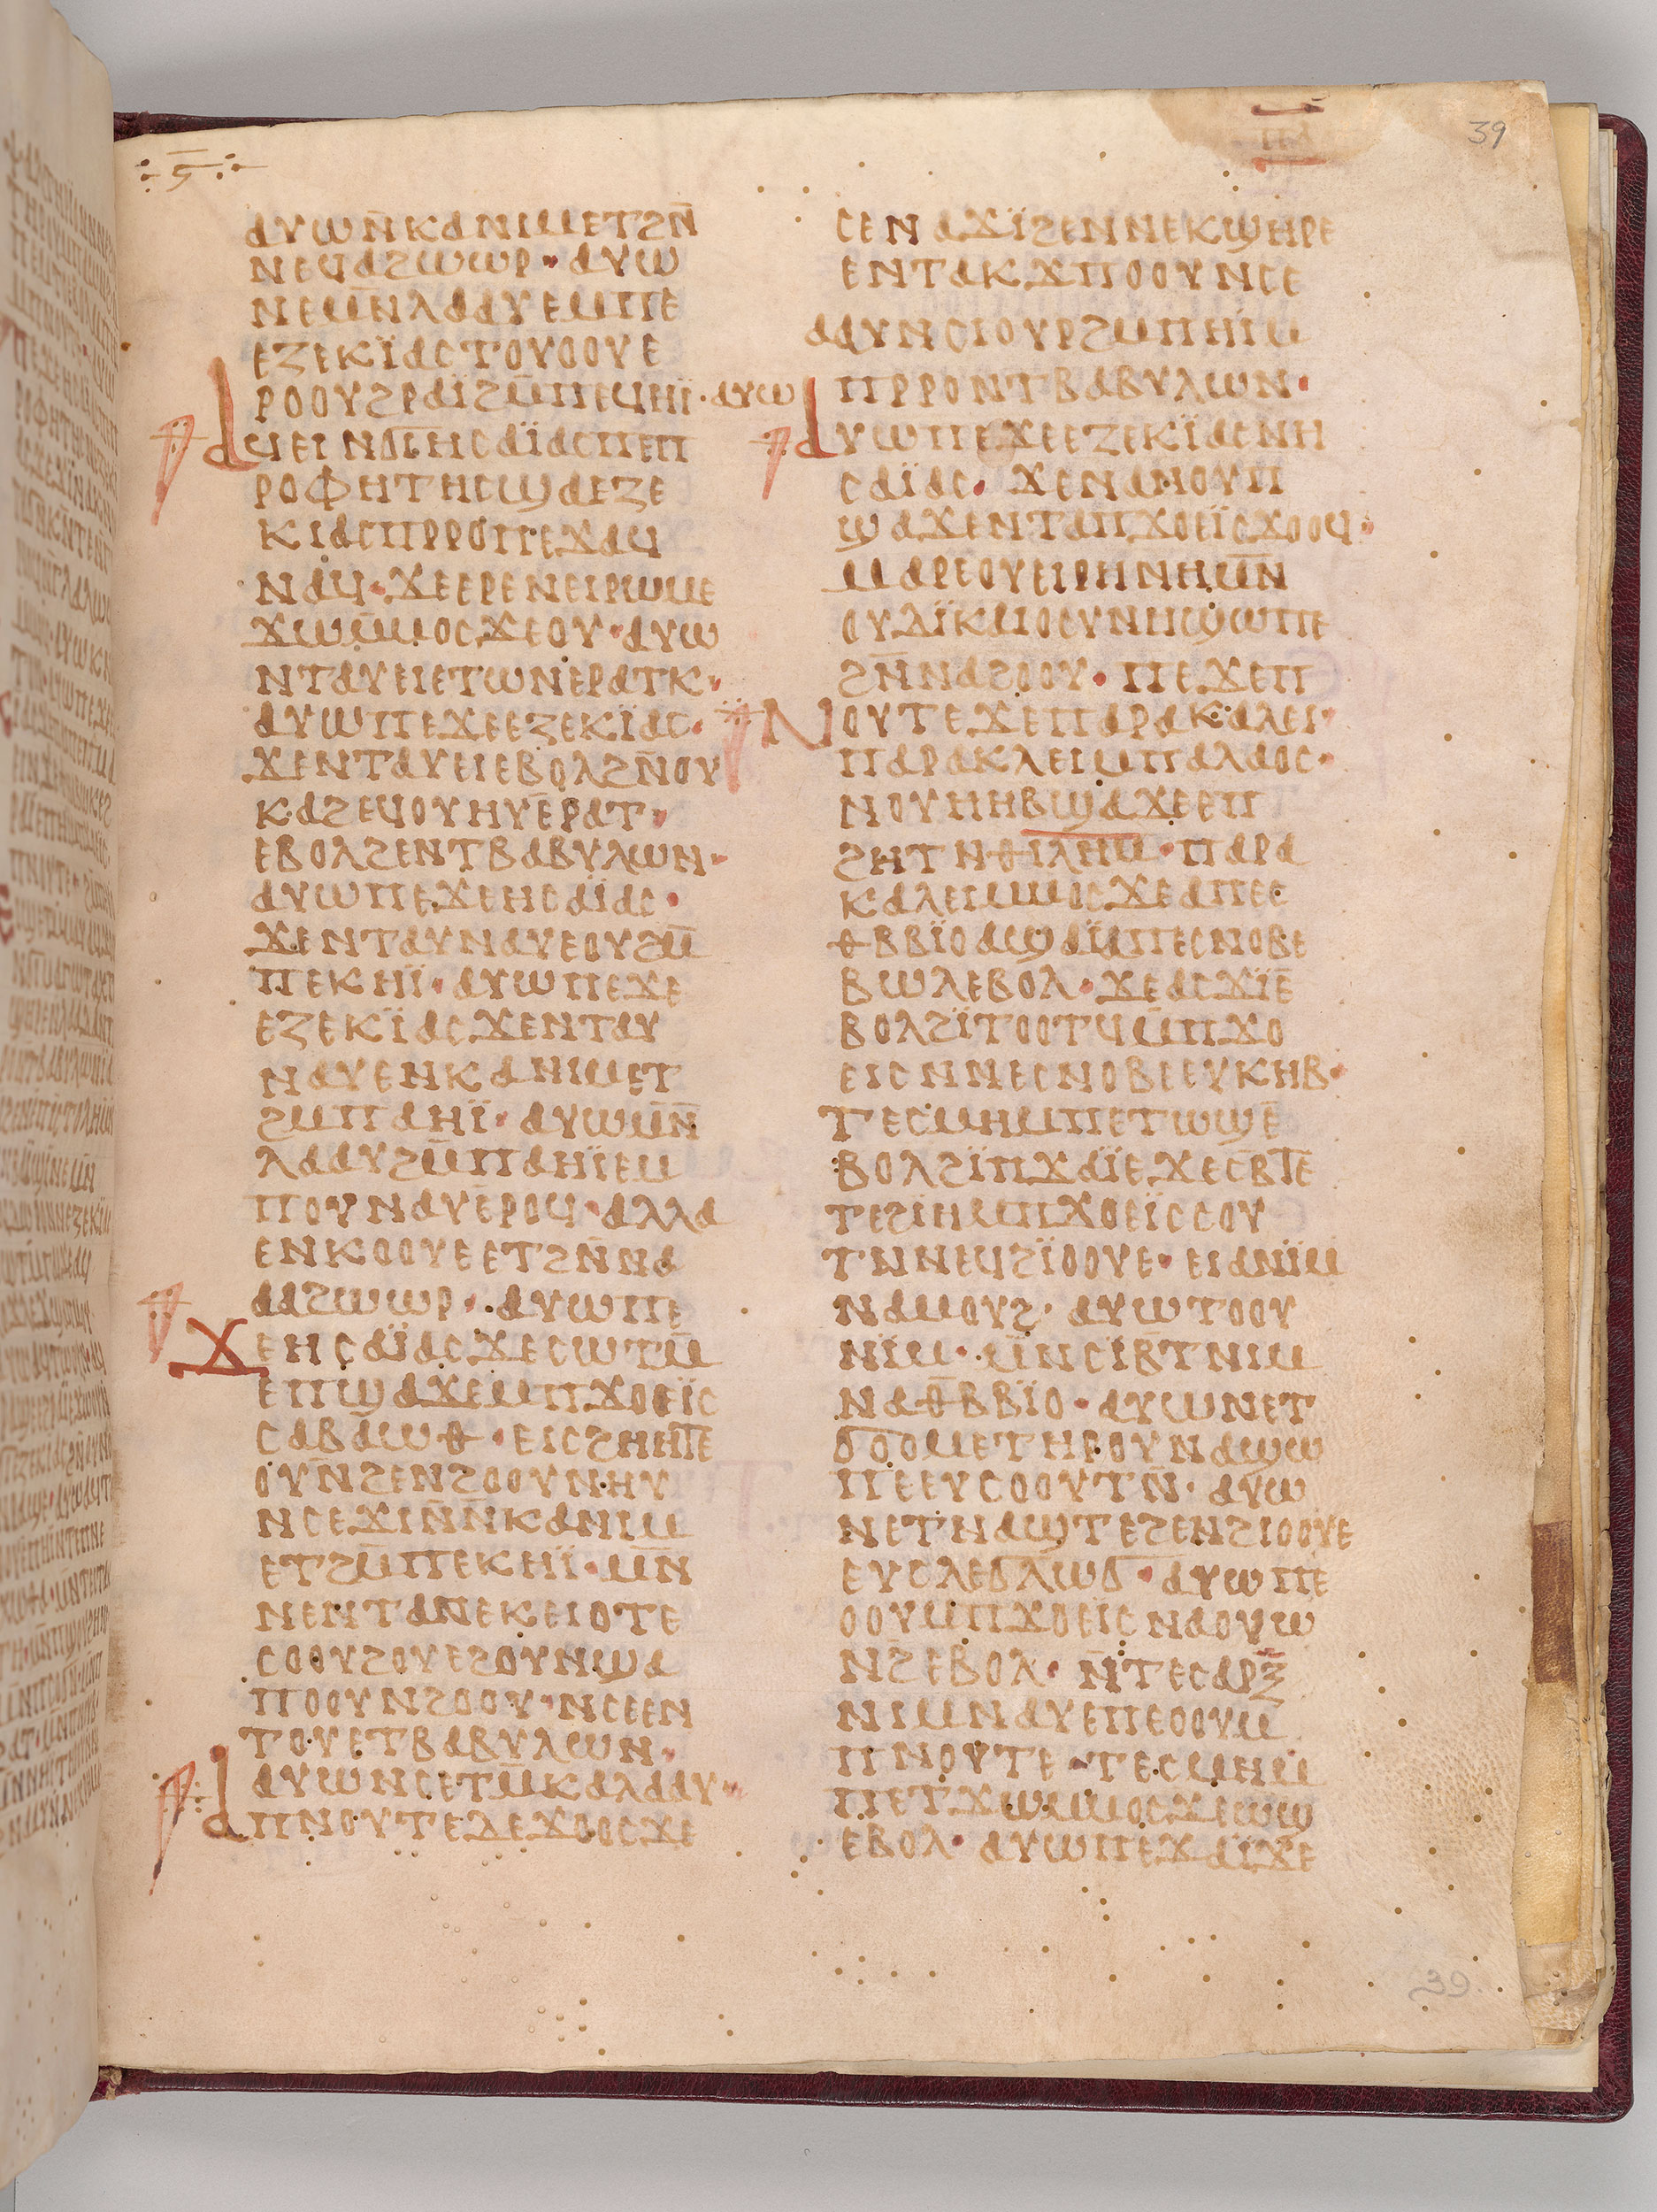 ⲋ
39
ⲁⲩⲱⲛ̄ⲕⲁⲛⲓⲙⲉⲧϩⲛ̄
ⲛⲉϥⲁϩⲱⲱⲣ· ⲁⲩⲱ
ⲛⲉⲙ̄ⲛⲗⲁⲁⲩⲉⲙⲡⲉ
ⲉⲍⲉⲕⲓ̈ⲁⲥⲧⲟⲩⲟⲟⲩⲉ
ⲣⲟⲟⲩϩⲣⲁⲓ̈ϩⲙ̄ⲡⲉϥⲏⲓ̈· ⲁⲩⲱ
ⲁϥⲉⲓⲛϭⲓⲏⲥⲁⲓ̈ⲁⲥⲡⲉⲡ
ⲣⲟⲫⲏⲧⲏⲥϣⲁⲉⲍⲉ
ⲕⲓⲁⲥⲡⲣⲣⲟⲡⲉϫⲁϥ
ⲛⲁϥ· ϫⲉⲉⲣⲉⲛⲉⲓⲣⲱⲙⲉ
ϫⲱⲙ̄ⲙⲟⲥϫⲉⲟⲩ· ⲁⲩⲱ
ⲛⲧⲁⲩⲉⲓⲉⲧⲱⲛⲉⲣⲁⲧⲕ·
ⲁⲩⲱⲡⲉϫⲉⲉⲍⲉⲕⲓ̈ⲁⲥ·
ϫⲉⲛⲧⲁⲩⲉⲓⲉⲃⲟⲗϩⲛ̄ⲟⲩ
ⲕⲁϩⲉϥⲟⲩⲏⲩⲉ̄ⲣⲁⲧ·
ⲉⲃⲟⲗϩⲉⲛⲧⲃⲁⲃⲩⲗⲱⲛ·
ⲁⲩⲱⲡⲉϫⲉⲏⲥⲁⲓ̈ⲁⲥ·
ϫⲉⲛⲧⲁⲩⲛⲁⲩⲉⲟⲩϩⲙ̄
ⲡⲉⲕⲏⲓ̈· ⲁⲩⲱⲡⲉϫⲉ
ⲉⲍⲉⲕⲓ̈ⲁⲥϫⲉⲛⲧⲁⲩ
ⲛⲁⲩⲉⲛⲕⲁⲛⲓⲙⲉⲧ
ϩⲙⲡⲁⲏⲓ̈· ⲁⲩⲱⲙ̄ⲛ̄
ⲗⲁⲁⲩϩⲙ̄ⲡⲁⲏⲓ̈ⲉⲙ
ⲡⲟⲩⲛⲁⲩⲉ̄ⲣⲟϥ· ⲁⲗⲗⲁ
ⲉⲛⲕⲟⲟⲩⲉⲉⲧϩⲛ̄ⲛⲁ
ⲁⲁϩⲱⲱⲣ· ⲁⲩⲱⲡⲉ
ϫⲉⲏⲥⲁⲓ̈ⲁⲥϫⲉⲥⲱⲧⲙ̄
ⲉⲡϣⲁϫⲉⲙⲡϫⲟⲉⲓ̈ⲥ
ⲥⲁⲃⲁⲱⲑ· ⲉⲓⲥϩⲏⲏⲧⲉ
ⲟⲩⲛ̄ϩⲉⲛϩⲟⲟⲩⲛⲏⲩ
ⲛⲥⲉϫⲓⲛ̄ⲛ̄ⲕⲁⲛⲓⲙ
ⲉⲧϩⲙ̄ⲡⲉⲕⲏⲓ̈· ⲙ̄ⲛ
ⲛⲉⲛⲧⲁⲛⲉⲕⲉⲓⲟⲧⲉ
ⲥⲟⲟⲩϩⲟⲩⲉϩⲟⲩⲛϣⲁ
ⲡⲟⲟⲩⲛϩⲟⲟⲩ· ⲛⲥⲉⲉⲛ
ⲧⲟⲩⲉⲧⲃⲁⲃⲩⲗⲱⲛ·
ⲁⲩⲱⲛⲥⲉⲧⲙ̄ⲕⲁⲗⲁⲁⲩ·
ⲁⲡⲛⲟⲩⲧⲉⲇⲉϫⲟⲟⲥϫⲉ
ⲥⲉⲛⲁϫⲓ̈ϩⲉⲛⲛⲉⲕϣⲏⲣⲉ
ⲉⲛⲧⲁⲕϫⲡⲟⲟⲩⲛⲥⲉ
ⲁⲁⲩⲛⲥⲓⲟⲩⲣϩⲙⲡⲏⲓ̈ⲙ
ⲡⲣⲣⲟⲛⲧⲃⲁⲃⲩⲗⲱⲛ·
ⲁⲩⲱⲡⲉϫⲉⲉⲍⲉⲕⲓ̈ⲁⲥⲛⲏ
ⲥⲁⲓ̈ⲁⲥ· ϫⲉⲛⲁⲛⲟⲩⲡ
ϣⲁϫⲉⲛⲧⲁⲡϫⲟⲉⲓ̈ⲥϫⲟⲟϥ·
ⲙⲁⲣⲉⲟⲩⲉⲓⲣⲏⲛⲏⲙ̄ⲛ
ⲟⲩⲇⲓ̈ⲕⲁⲓⲟⲥⲩⲛⲏϣⲱⲡⲉ
ϩⲛ̄ⲛⲁϩⲟⲟⲩ· ⲡⲉϫⲉⲡ
ⲛⲟⲩⲧⲉϫⲉⲡⲁⲣⲁⲕⲁⲗⲉⲓ·
ⲡⲁⲣⲁⲕⲗⲉⲓⲙⲡⲁⲗⲁⲟⲥ·
ⲛⲟⲩⲏⲏⲃϣⲁϫⲉⲉⲡ
ϩⲏⲧⲛⲑⲓⲗⲏⲙ· ⲡⲁⲣⲁ
ⲕⲁⲗⲉⲓⲙⲙⲟⲥϫⲉⲁⲡⲉⲥ
ⲑⲃⲃⲓ̈ⲟⲁϣⲁⲓ̈ⲁⲡⲉⲥⲛⲟⲃⲉ
ⲃⲱⲗⲉⲃⲟⲗ· ϫⲉⲁⲥϫⲓ̈ⲉ̄
ⲃⲟⲗϩⲓ̈ⲧⲟⲟⲧϥⲙ̄ⲡϫⲟ
ⲉⲓⲥⲛⲛⲉⲥⲛⲟⲃⲉⲉⲩⲕⲏⲃ·
ⲧⲉⲥⲙⲏⲙⲡⲉⲧⲱϣⲉ̄
ⲃⲟⲗϩⲓ̈ⲡϫⲁⲓ̈ⲉϫⲉⲥⲃ̄ⲧⲉ
ⲧⲉϩⲓⲏⲙⲡϫⲟⲉⲓ̈ⲥⲥⲟⲩ
ⲧⲛⲛⲉϥϩⲓ̈ⲟⲟⲩⲉ· ⲉⲓⲁⲛⲓ̈ⲙ
ⲛⲁⲙⲟⲩϩ· ⲁⲩⲱⲧⲟⲟⲩ
ⲛⲓ̈ⲙ· ⲙ̄ⲛⲥⲓⲃ̄ⲧⲛⲓⲙ
ⲛⲁⲑ̄ⲃⲃⲓ̈ⲟ· ⲁⲩⲱⲛⲉⲧ
ϭⲟⲟⲙⲉⲧⲏⲣⲟⲩⲛⲁϣⲱ
ⲡⲉⲉⲩⲥⲟⲟⲩⲧⲛ̄· ⲁⲩⲱ
ⲛⲉⲧⲛⲁϣⲧⲉϩⲉⲛϩⲓⲟⲟⲩⲉ
ⲉⲩⲥⲗⲉϭⲗⲱϭ· ⲁⲩⲱⲡⲉ
ⲟⲟⲩⲙⲡϫⲟⲉⲓⲥⲛⲁⲟⲩⲱ
ⲛϩ̄ⲉⲃⲟⲗ· ⲛ̄ⲧⲉⲥⲁⲣⲝ̄
ⲛⲓⲙⲛⲁⲩⲉⲡⲉⲟⲟⲩⲙ
ⲡⲛⲟⲩⲧⲉ· ⲧⲉⲥⲙⲏⲙ
ⲡⲉⲧϫⲱⲙⲙⲟⲥϫⲉⲱϣ
ⲉⲃⲟⲗ· ⲁⲩⲱⲡⲉϫⲁⲓ̈ϫⲉ
39